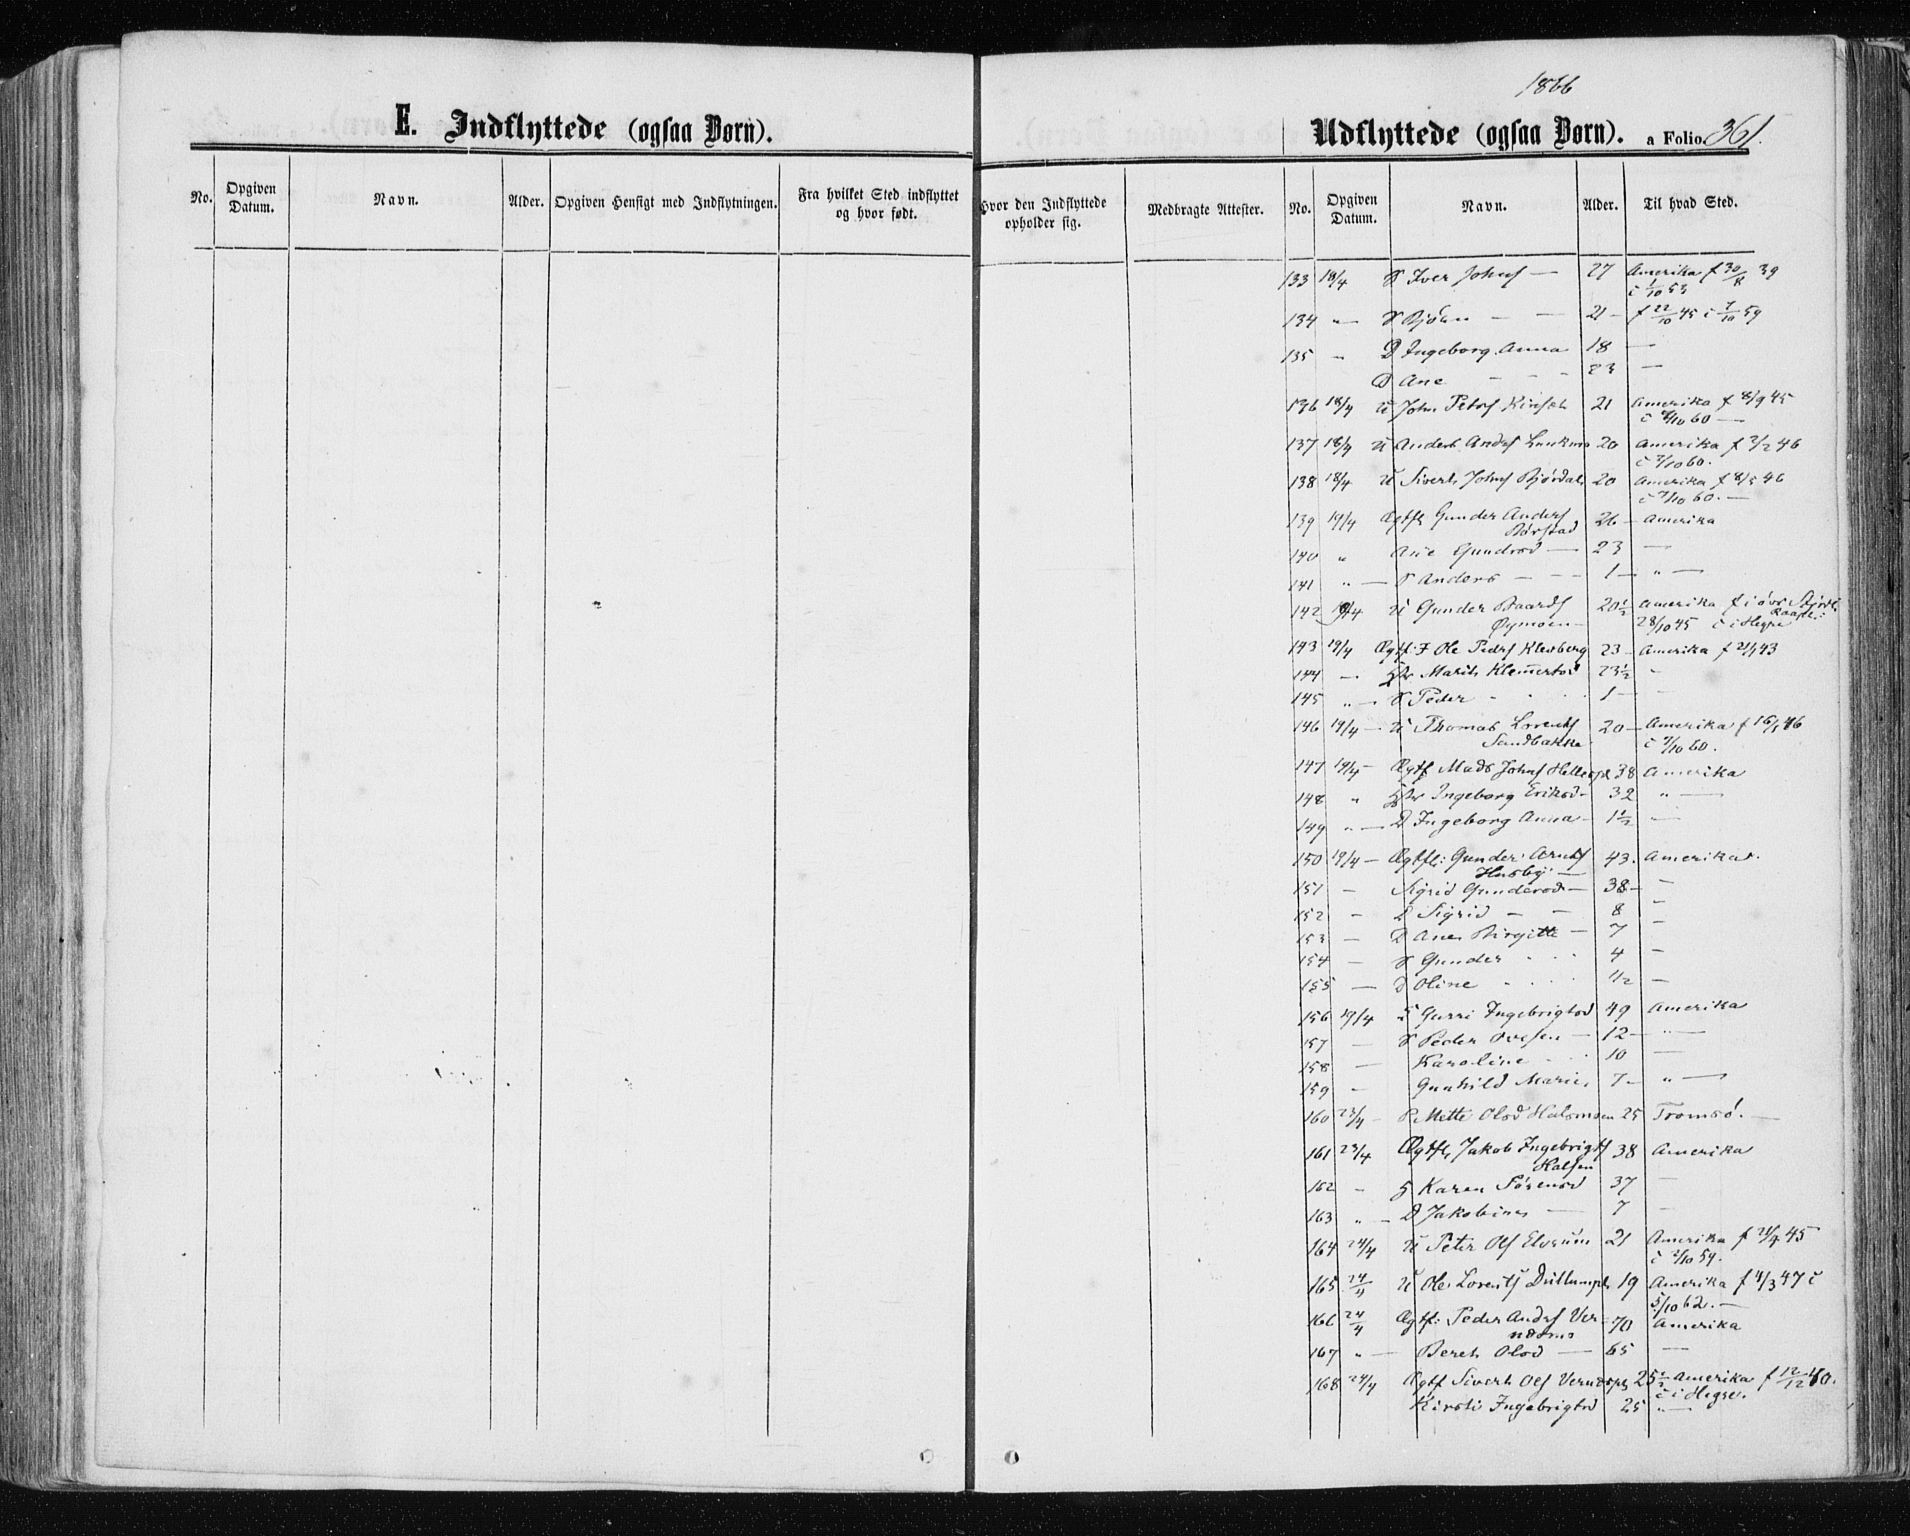 1866
E. Indflyttede (ogsaa Børn).
Udflyttede (ogsaa Børn). a Folio. 361.
No. Opgiven Datum. Navn. Alder. Opgiven Hensigt med Indflytningen. Fra hvilket Sted indflyttet og hvor født. Hvor den Indflyttede opholder sig. Medbragte Attester. No. Opgiven Datum. Navn. Alder. Til hvad Sted.
133 18/4 S Iver Johns — 27 Amerika f 30/8 39
c 1/10 53
134 " — S Bjørn — — 21 — f 22/10 45 c 7/10 59
135 " D Ingeborg Anna 18 —
D Ane - - - 23 —
136 18/4 U John Peters 21 Amerika f 8/9 45
c 60 —
137 18/4 U Anders Anders 20 Amerika f 2/2 46
c 7/10 60.
138 18/4 U Sivert Johns Bjørdal 20 Amerika f 8/5 46
c 7/10 60. —
139 19/4 Ægtf Gunder Anders 26 — Amerika
Børstad
140 " Ane Gundrsd — 23 —
141 " — S Anders — — — 1 — " —
142 19/4 U Gunder Baards 20½ Amerika f i øvr
Øymoen — 28/10 45 c i Hegre
143 19/4 Ægtf. Ole Peders Klevberg 23 — Amerika f 43
144 — Marit Klemetsd 23½ "
145 " — S Peder - - 1 — —
146 19/4 — U Thomas Lorents 20 — Amerika f 16/1 46
Sandbakke c 7/10 60.
147 19/4 — Ægtf Mads Johns 38 Amerika
148 " Ingeborg Eriksd — 32 " —
149 " — D Ingeborg Anna — 1½ " —
150 19/4 — Ægtf: Gunder Arnts 43. Amerika.
Husby —
151 — Sigrid Gundersd — 38 — —
152 — D Sigrid — — 8 —
153 — D Ane Birgitte — 7 —
154 — S Gunder . . . 4 —
155 — D Oline . . . . 1/2 —
156 19/4 Gurri Ingebrigtsd 49 Amerika
157 — S Peder — 12 — " —
158 — Karoline . . . 10 —
159 — Gunhild Marie 7 — " —
160 23/4 — P. Mette Olsd Halsmoen 25 Tromsö. —
161 23/4 Ægtf Jakob Ingebrigts 38 Amerika
Halsen
162 — Karen Sørensd 37 —
163 " — D Jakobine — 7 —
164 24/4 U Peter Ols Elvrum 21 Amerika f 45
c 2/10 59.
165 24/4 U Ole Lorents 19 Amerika f 4/3 47 c
5/10 62. —
166 24/4 Ægtf: Peder Anders Ver- 70 Amerika
167 " — Beret Olsd — 65 —
168 24/4 Ægtf Sivert Ols 25½ Amerika f 12/12 40.
c i Hegre.
Kirsti Ingebrigtsd 25 " —